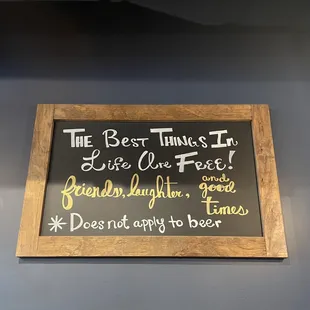 The Best Things In
Life Are Free!
friends, laughter, and good
times
* Does not apply to beer